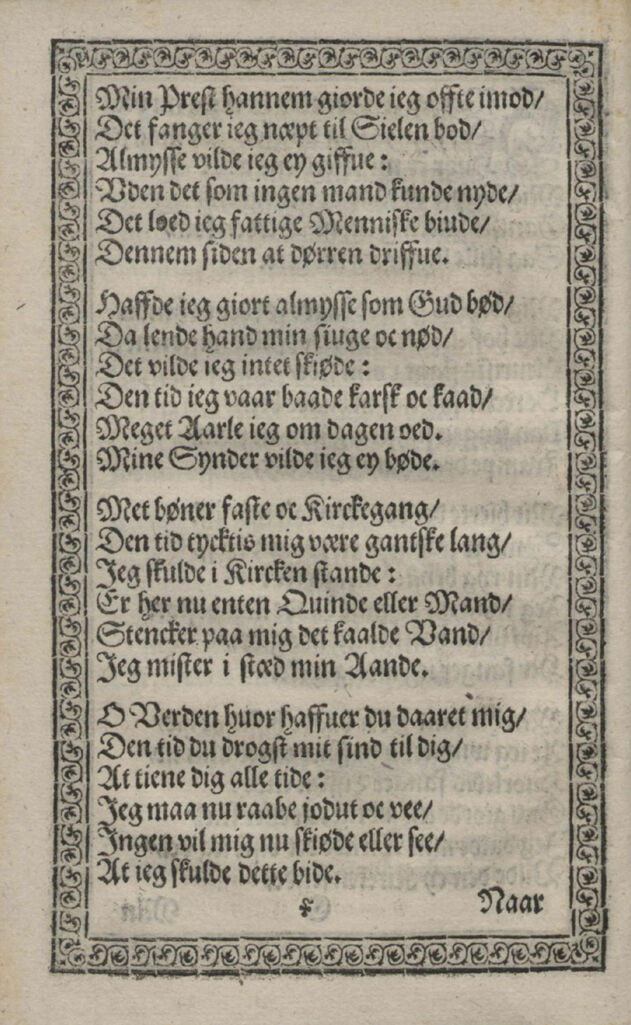 Min Prest hannem giorde ieg offte imod/
Det fanger ieg næpt til Sielen bod/
Almysse vilde ieg ey giffue:
Vden det som ingen mand kunde nyde/
Det loed ieg fattige Menniske biude/
Dennem siden at dørren driffue.
Haffde ieg giort almysse som Gud bød/
Da lende hand min siuge oc nød/
Det vilde ieg intet skiøde:
Den tid ieg vaar baade karsk oc kaad/
Meget Aarle ieg om dagen oed.
Mine Synder vilde ieg ey bøde.
Met bøner faste oc Kirckegang/
Den tid tycktis mig være gantske lang/
Jeg skulde i Kircken stande:
Er her nu enten Quinde eller Mand/
Stencker paa mig det kaalde Vand/
Jeg mister i stæd min Aande.
O Verden huor haffuer du daaret mig/
Den tid du drogst mit sind til dig/
At tiene dig alle tide:
Jeg maa nu raabe jodut oc vee/
Ingen vil mig nu skiøde eller see/
At ieg skulde dette bide.
Naar